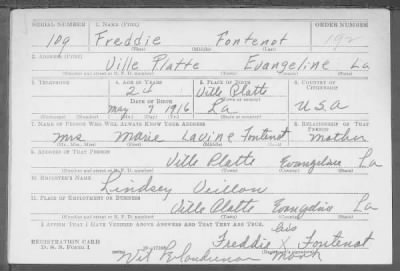 SERIAL NUMBER 1. NAME (Print) ORDER NUMBER
109 Freddie Fontenot 192
(First) (Middle) (Last)
2. ADDRESS (Print)
Ville Platte Evangeline La
(Number and street or R. F. D. number) (Town) (County) (State)
3. TELEPHONE 4. AGE IN YEARS 5. PLACE OF BIRTH 6. COUNTRY OF CITIZENSHIP
24 Ville Platte
DATE OF BIRTH (Town or county)
May 7 1916 La U.S.A
(Mo.) (Day) (Yr.) (State or country)
7. NAME OF PERSON WHO WILL ALWAYS KNOW YOUR ADDRESS 8. RELATIONSHIP OF THAT PERSON
Mrs Marie Lavine Fontenot mother
(Mr., Mrs., Miss) (First) (Middle) (Last)
9. ADDRESS OF THAT PERSON
Ville Platte Evangeline La
(Number and street or R. F. D. number) (Town) (County) (State)
10. EMPLOYER'S NAME
Lindsey Veillon
11. PLACE OF EMPLOYMENT OR BUSINESS
Ville Platte Evangeline La
(Number and street or R. F. D. number) (Town) (County) (State)
I AFFIRM THAT I HAVE VERIFIED ABOVE ANSWERS AND THAT THEY ARE TRUE.
his
REGISTRATION CARD Freddie X Fontenot
D. S. S. Form 1 (Registrant's signature)
Wit mark